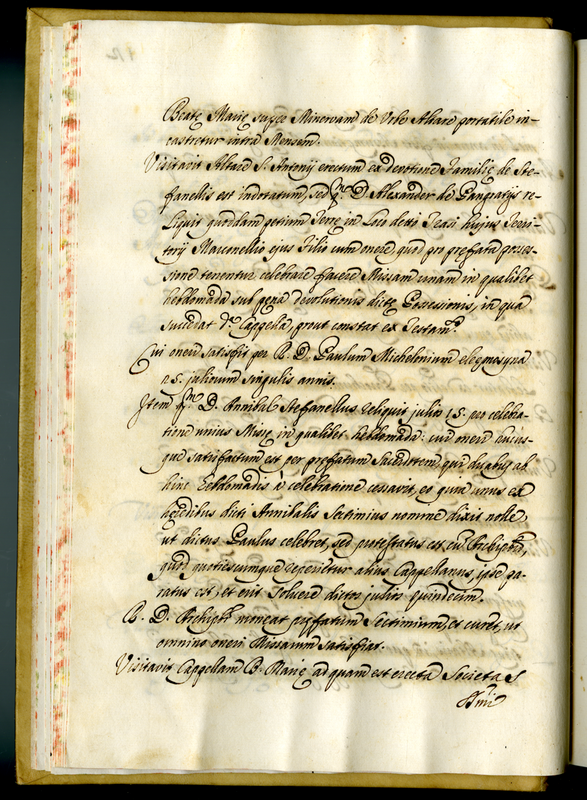 Beatę Marię supra Minervam de Urbe Altare portatile in-
castretur intra Mensem.
Visitavit Altare S. Antonij erectum ex devotione Familię de Ste-
fanellis est indotatum, sed qm D. Alexander de Pangratijs re-
liquit quoddam petium Terrę in loco dicto Jeasi hujus Terri-
torij Marcnellio ejus filio cum onere, quod pro pręfata posses-
sione teneatur celebrare facere Missam unam in qualibet
hebdomada sub pena devolutionis dictę Possesionis, in qua
succedat da Cappella, prout constat ex Testamto
Cui oneri satisfit per R. D. Paulum Michelonium eleęmosyna
25. juliorum singulis annis.
Item qm D. Annibal Stefanellus reliquit julios 15. pro celebra-
tione unius Missę in qualibet hebdomada: cui oneri hucus-
que satisfactum est per pręfatum Sacerdotem, qui duabus ab
hinc hebdomadis à celebratione cessavit, eo quia unus ex
heredibus dicti Annibalis Septimius nomine dixit nolle,
ut dictus Paulus celebret, sed protestatus est cū Archiptro,
quod quotiescumque reperietur alius Cappellanus, ipse pa-
ratus est, et erit solvere dictos julios quindecim.
R. D. Archiptr moneat pręfatum Septimium, et curet, ut
omnino oneri Missarum satisfiat.
Visitavit Cappellam B. Marię ad quam est erecta Societas S